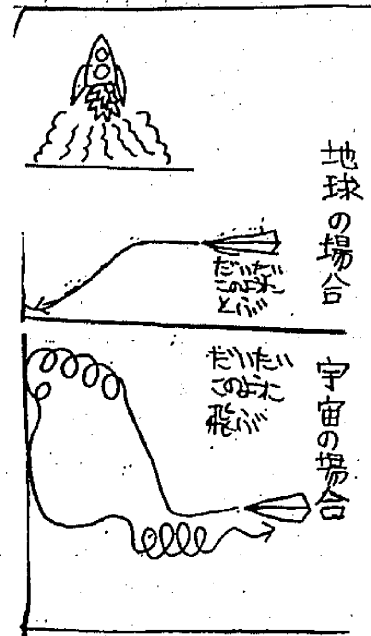 地球の場合
だいたい
このように
とぶ
宇宙の場合
だいたい
このように
飛ぶ